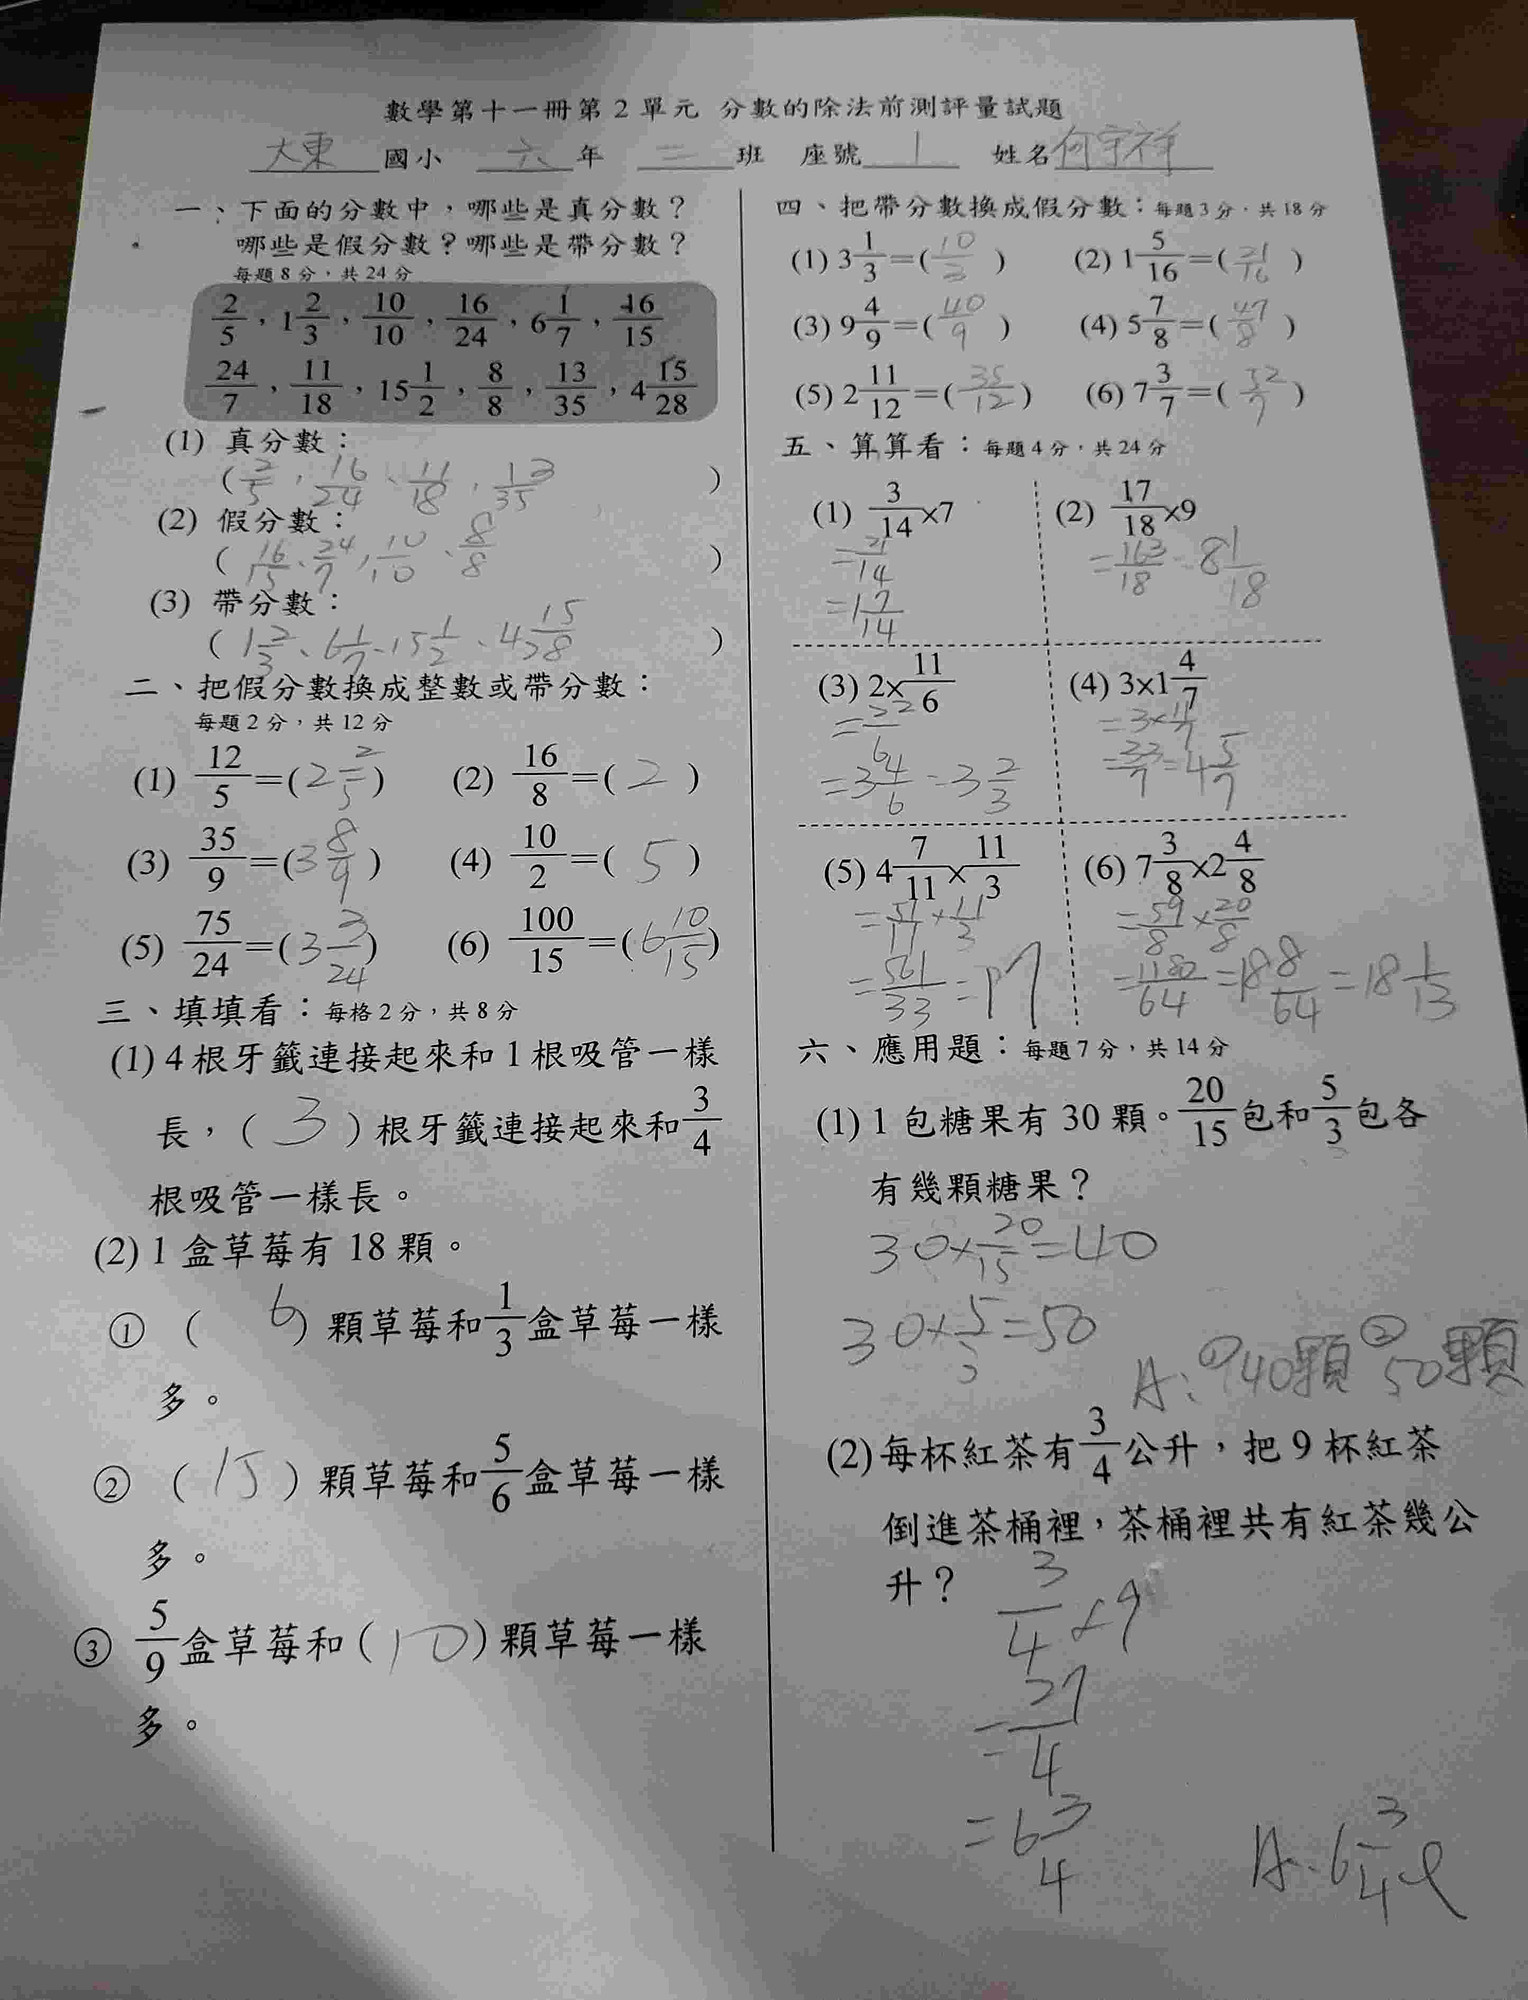 數學第十一冊第2單元 分數的除法前測評量試題
大東國小 六年 二班 座號 1 姓名何宇祥
一、下面的分數中，哪些是真分數？
哪些是假分數？哪些是帶分數？
每題8分，共24分
2/5，1 2/3，10/10，16/24，6 1/7，16/15
24/7，11/18，15 1/2，8/8，13/35，4 15/28
(1) 真分數：
(2/5、16/24、11/18、13/35)
(2) 假分數：
(16/15、24/7、10/10、8/8)
(3) 帶分數：
(1 2/3、6 1/7、15 1/2、4 15/28)
二、把假分數換成整數或帶分數：
每題2分，共12分
(1) 12/5=(2 2/5) (2) 16/8=(2)
(3) 35/9=(3 8/9) (4) 10/2=(5)
(5) 75/24=(3 3/24) (6) 100/15=(6 10/15)
三、填填看：每格2分，共8分
(1) 4根牙籤連接起來和1根吸管一樣
長，(3)根牙籤連接起來和3/4
根吸管一樣長。
(2) 1盒草莓有18顆。
① (6)顆草莓和1/3盒草莓一樣
多。
② (15)顆草莓和5/6盒草莓一樣
多。
③ 5/9盒草莓和(10)顆草莓一樣
多。
四、把帶分數換成假分數：每題3分，共18分
(1) 3 1/3=(10/3) (2) 1 5/16=(21/16)
(3) 9 4/9=(40/9) (4) 5 7/8=(47/8)
(5) 2 11/12=(35/12) (6) 7 3/7=(52/7)
五、算算看：每題4分，共24分
(1) 3/14×7
=21/14
=1 7/14
(2) 17/18×9
=163/18=8 1/18
(3) 2×11/6
=22/6
=3 4/6=3 2/3
(4) 3×1 4/7
=3×11/7
=33/7=4 5/7
(5) 4 7/11×11/3
=51/11×11/3
=561/33=17
(6) 7 3/8×2 4/8
=59/8×20/8
=1180/64=18 8/64=18 1/13
六、應用題：每題7分，共14分
(1) 1包糖果有30顆。20/15包和5/3包各
有幾顆糖果？
30×20/15=40
30×5/3=50
A:①40顆②50顆
(2) 每杯紅茶有3/4公升，把9杯紅茶
倒進茶桶裡，茶桶裡共有紅茶幾公
升？
3/4×9
=27/4
=6 3/4
A:6 3/4ℓ